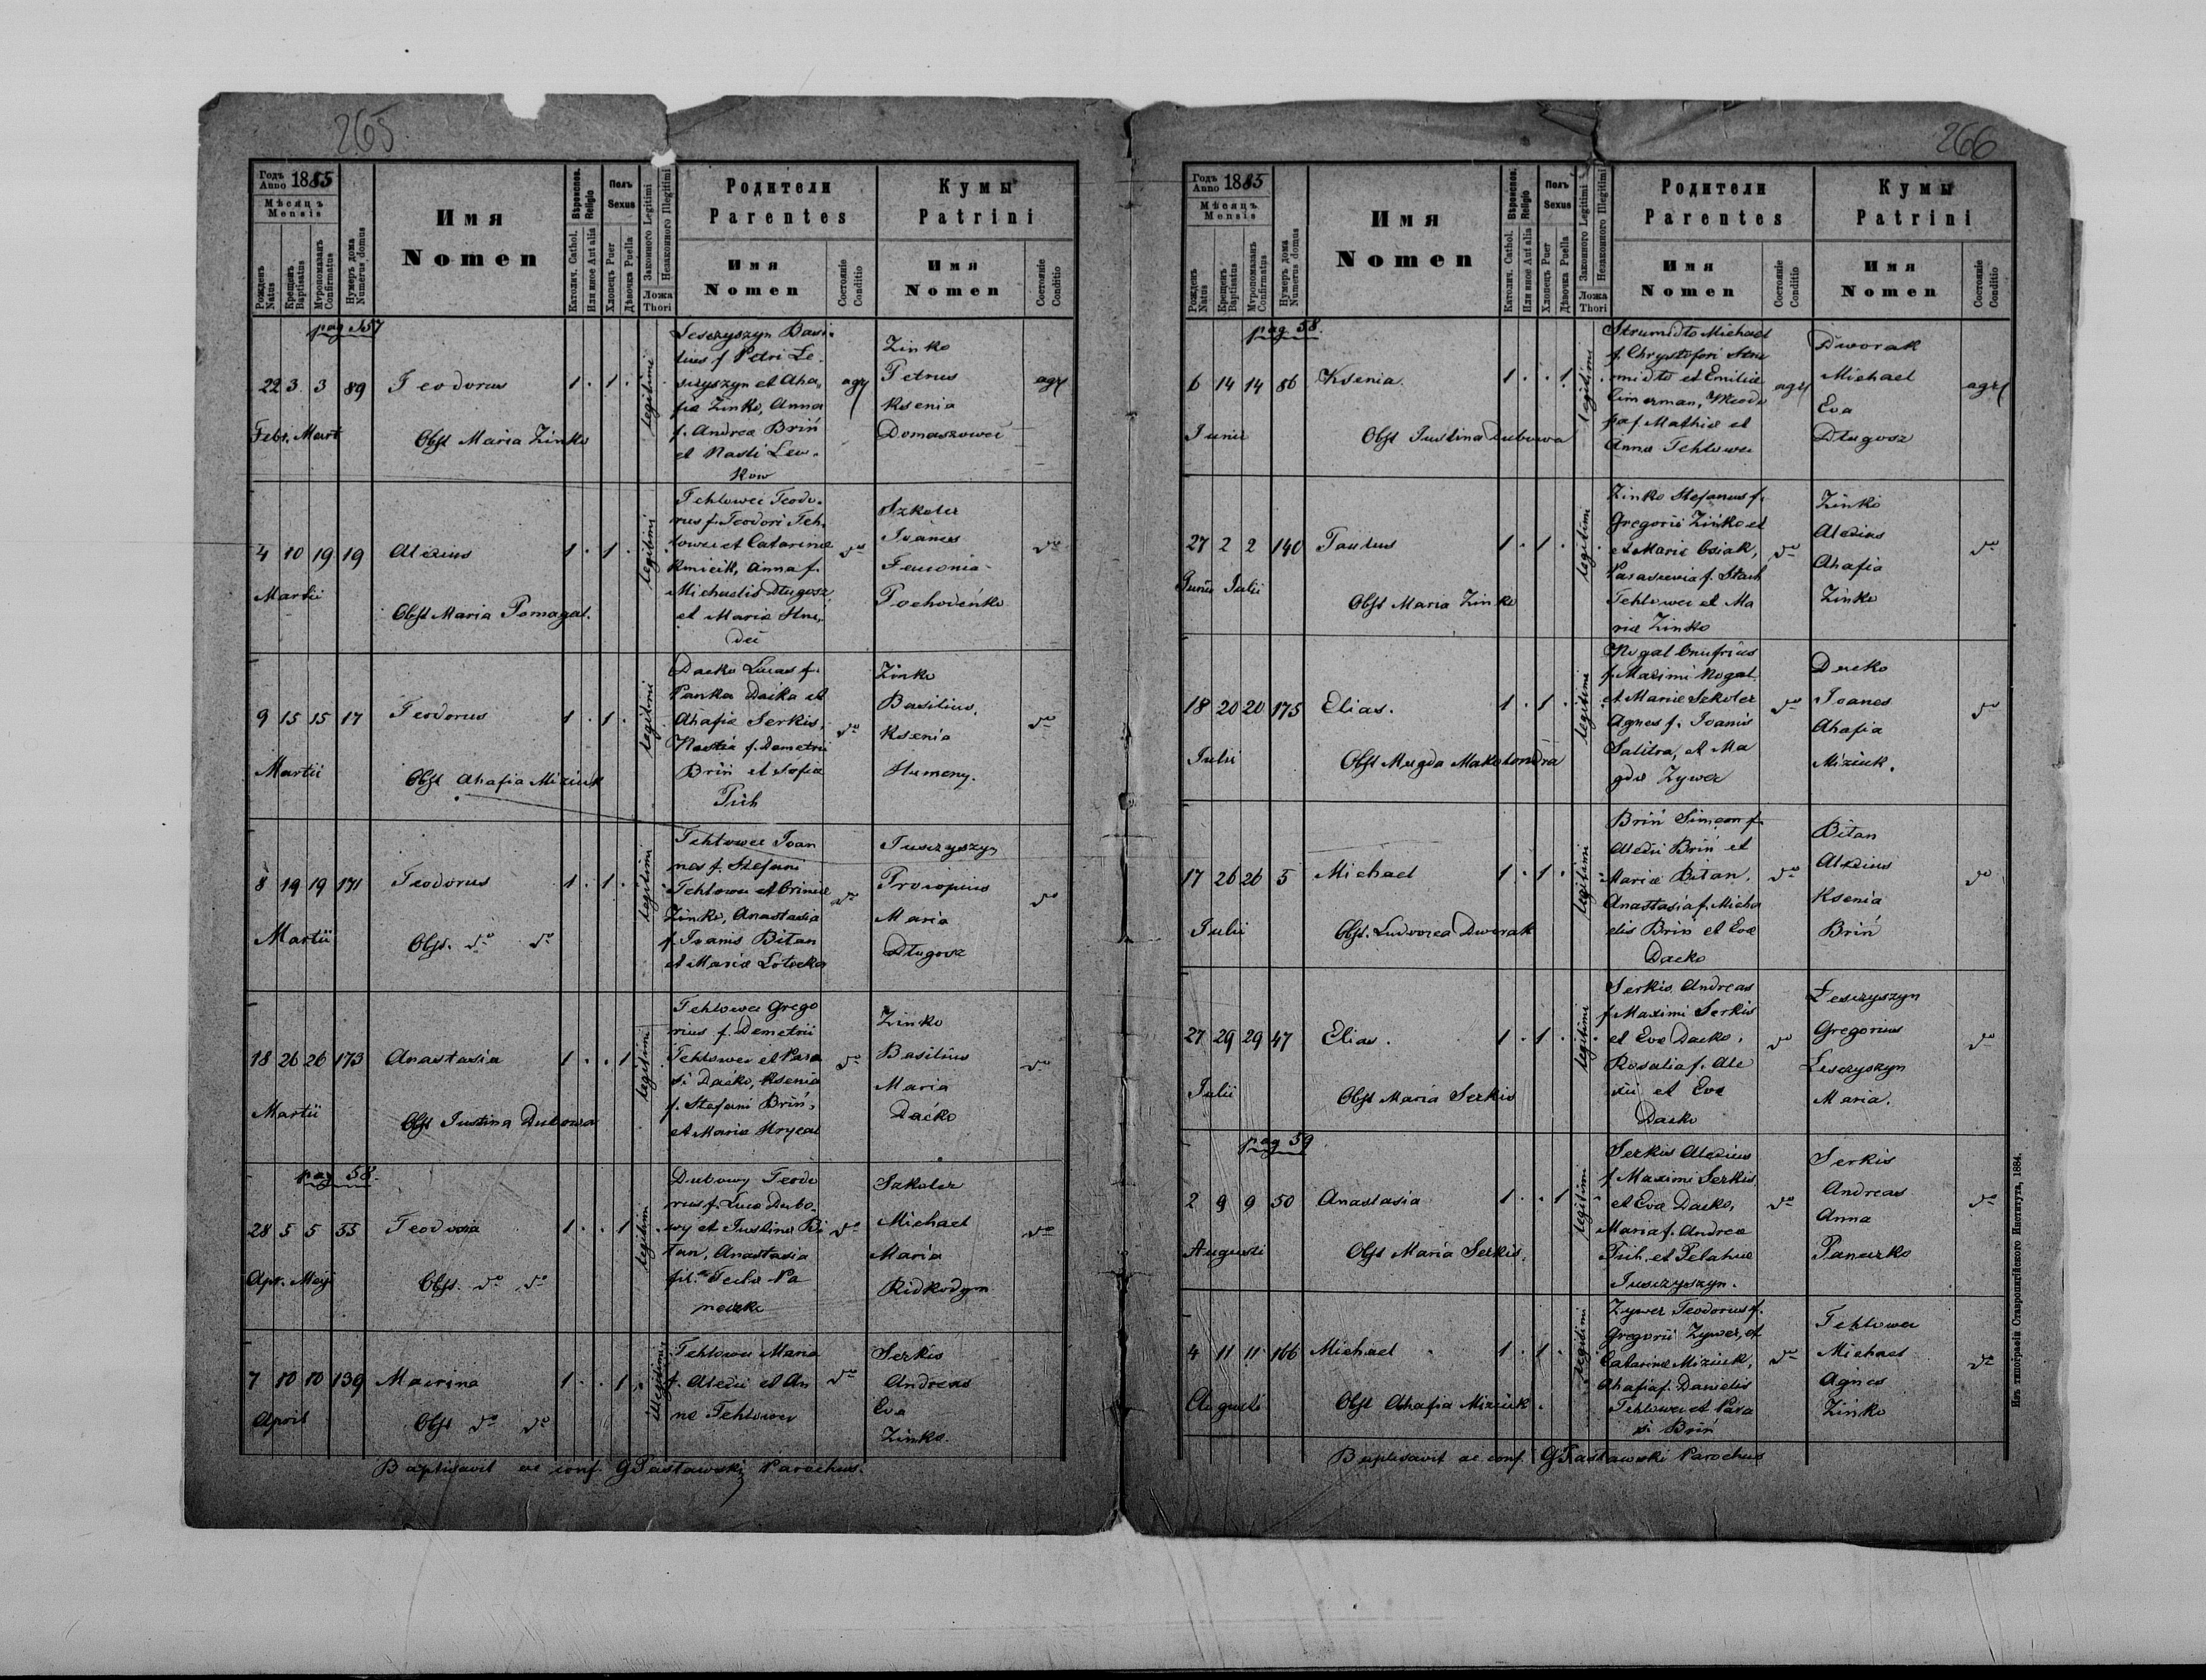 265
Годъ Anno 1885
Мѣсяцъ Mensis
Рожденъ Natus
Крещенъ Baptisatus
Мѵропомазанъ Confirmatus
Нумеръ дома Numerus domus
Имя Nomen
Вѣроиспов. Religio
Католич. Cathol.
Или иное Aut alia
Полъ Sexus
Хлопецъ Puer
Дѣвочка Puella
Законного Legitimi
Незаконного Illegitimi
Ложа Thori
Родители Parentes
Имя Nomen
Состояніе Conditio
Кумы Patrini
Имя Nomen
Состояніе Conditio
pag 57
22 3 3 89 Teodorus 1 . 1 . legitimi
Febr. Mart
Obst Maria Zinko
Lesczyszyn Basi-
lius f Petri Le-
sczyszyn et Aha-
fia Zinko, Anna
f. Andrea Briń
et Nasti Lew-
kow
agr
Zinko
Petrus
Ksenia
Domaszowec
agr
4 10 19 19 Alexius 1 . 1 . legitimi
Martii
Obst Maria Pomagal.
Tehlowec Teodo-
rus f. Teodori Teh-
lowec et Catarina
Kmicik, Anna f.
Michaelis Długosz
et Maria Hni-
dei
do
Szkoler
Ivanes
Feuronia
Pochodeńko
do
9 15 15 17 Teodorus 1 . 1 . legitimi
Martii
Obst Ahafia Miziuk
Dacko Lucas f.
Panka Dacka et
Ahafia Serkis,
Nastia f. Demetrii
Briń et Sofia
Prih
do
Zinko
Basilius,
Ksenia
Humeny.
do
8 19 19 171 Teodorus 1 . 1 . legitimi
Martii
Obst. do do
Tehlowec Joan
nes f. Stefani
Tehlowec et Irinia
Zinko, Anastasia
f. Ivanis Bitan
et Maria Lotocka
do
Jusczyszyn
Procopius
Maria
Długosz
do
18 26 26 173 Anastasia 1 . . 1 legitimi
Martii
Obst Justina Dubowa
Tehlowec Grego
rius f. Demetrii
Tehlowec et Para
si Dacko, Ksenia
f. Stefani Briń,
et Maria Hrycal
do
Zinko
Basilius
Maria
Dacko
do
pag 58.
28 5 5 55 Teodosia 1 . . 1 legitimi
Apr. Maij
Obst. do do
Dubowy Teodo
rus f. Luca Dubo-
wy et Justina Bi
tan, Anastasia
fil. Tecla Pa
neczko
do
Szkoler
Michael
Maria
Ridkodym
do
7 10 10 139 Macrina 1 . . 1 illegitimi
April
Obst do do
Tehlowec Maria
f. Alexii et An
na Tehlowec
do
Serkis
Andreas
Eva
Zinko.
Baptisavit ac conf. GPastawski Parochus.
266
Годъ Anno 1885
Мѣсяцъ Mensis
Рожденъ Natus
Крещенъ Baptisatus
Мѵропомазанъ Confirmatus
Нумеръ дома Numerus domus
Имя Nomen
Вѣроиспов. Religio
Католич. Cathol.
Или иное Aut alia
Полъ Sexus
Хлопецъ Puer
Дѣвочка Puella
Законного Legitimi
Незаконного Illegitimi
Ложа Thori
Родители Parentes
Имя Nomen
Состояніе Conditio
Кумы Patrini
Имя Nomen
Состояніе Conditio
pag 58.
6 14 14 86 Ksenia. 1 . . 1 legitimi
Junii
Obst Justina Dubowa
Strumidło Michael
f. Chrystofori Stru
midło et Emilia
Cimerman,
pa f. Mathia et
Anna Tehlowec
agr
Dworak
Michael
Eva
Długosz
agr
27 2 2 140 Paulus 1 . 1 . legitimi
Junii Julii
Obst Maria Zinko
Zinko Stefanus f.
Gregorii Zinko et
et Maria Osiak,
Parascewia f. Stach
Tehlowec et Ma
ria Zinko
do
Zinko
Alexius
Ahafia
Zinko
do
18 20 20 175 Elias. 1 . 1 . legitimi
Julii
Obst Magda Makolondra
Nogal Onufrius
f. Maximi Nogal
et Maria Sckoler
Agnes f. Joanis
Salitra, et Ma
gda Zywer
do
Dacko
Joanes
Ahafia
Miziuk.
do
17 26 26 5 Michael 1 . 1 . legitimi
Julii
Obst. Ludovica Dworak
Briń Simeon f.
Alexii Briń et
Maria Bitan,
Anastasia f. Micha
elis Briń et Eva
Dacko
do
Bitan
Alexius
Ksenia
Briń
do
27 29 29 47 Elias. 1 . 1 . legitimi
Julii
Obst Maria Serkis
Serkis Andreas
f. Maximi Serkis
et Eva Dacko,
Rosalia f. Ale
xii et Eva
Dacko
do
Lesczyszyn
Gregorius
Lesczyszyn
Maria.
do
pag 59
2 9 9 50 Anastasia 1 . . 1 legitimi
Augusti
Obst Maria Serkis.
Serkis Alexius
f Maximi Serkis
et Eva Dacko,
Maria f. Andrea
Prih et Pelahia
Jusczyszyn.
do
Serkis
Andreas
Anna
Paneczko
do
4 11 11 166 Michael 1 . 1 . legitimi
Augusti
Obst Ahafia Miziuk.
Zywer Teodorus f.
Gregorii Zywer, et
Catarina Miziuk,
Ahafia f. Danielis
Tehlowec et Para
si Briń
do
Tehlowec
Michael
Agnes
Zinko
do
Baptisavit ac conf. GPastawski Parochus
Изъ типографіи Ставропигійского Института, 1884.